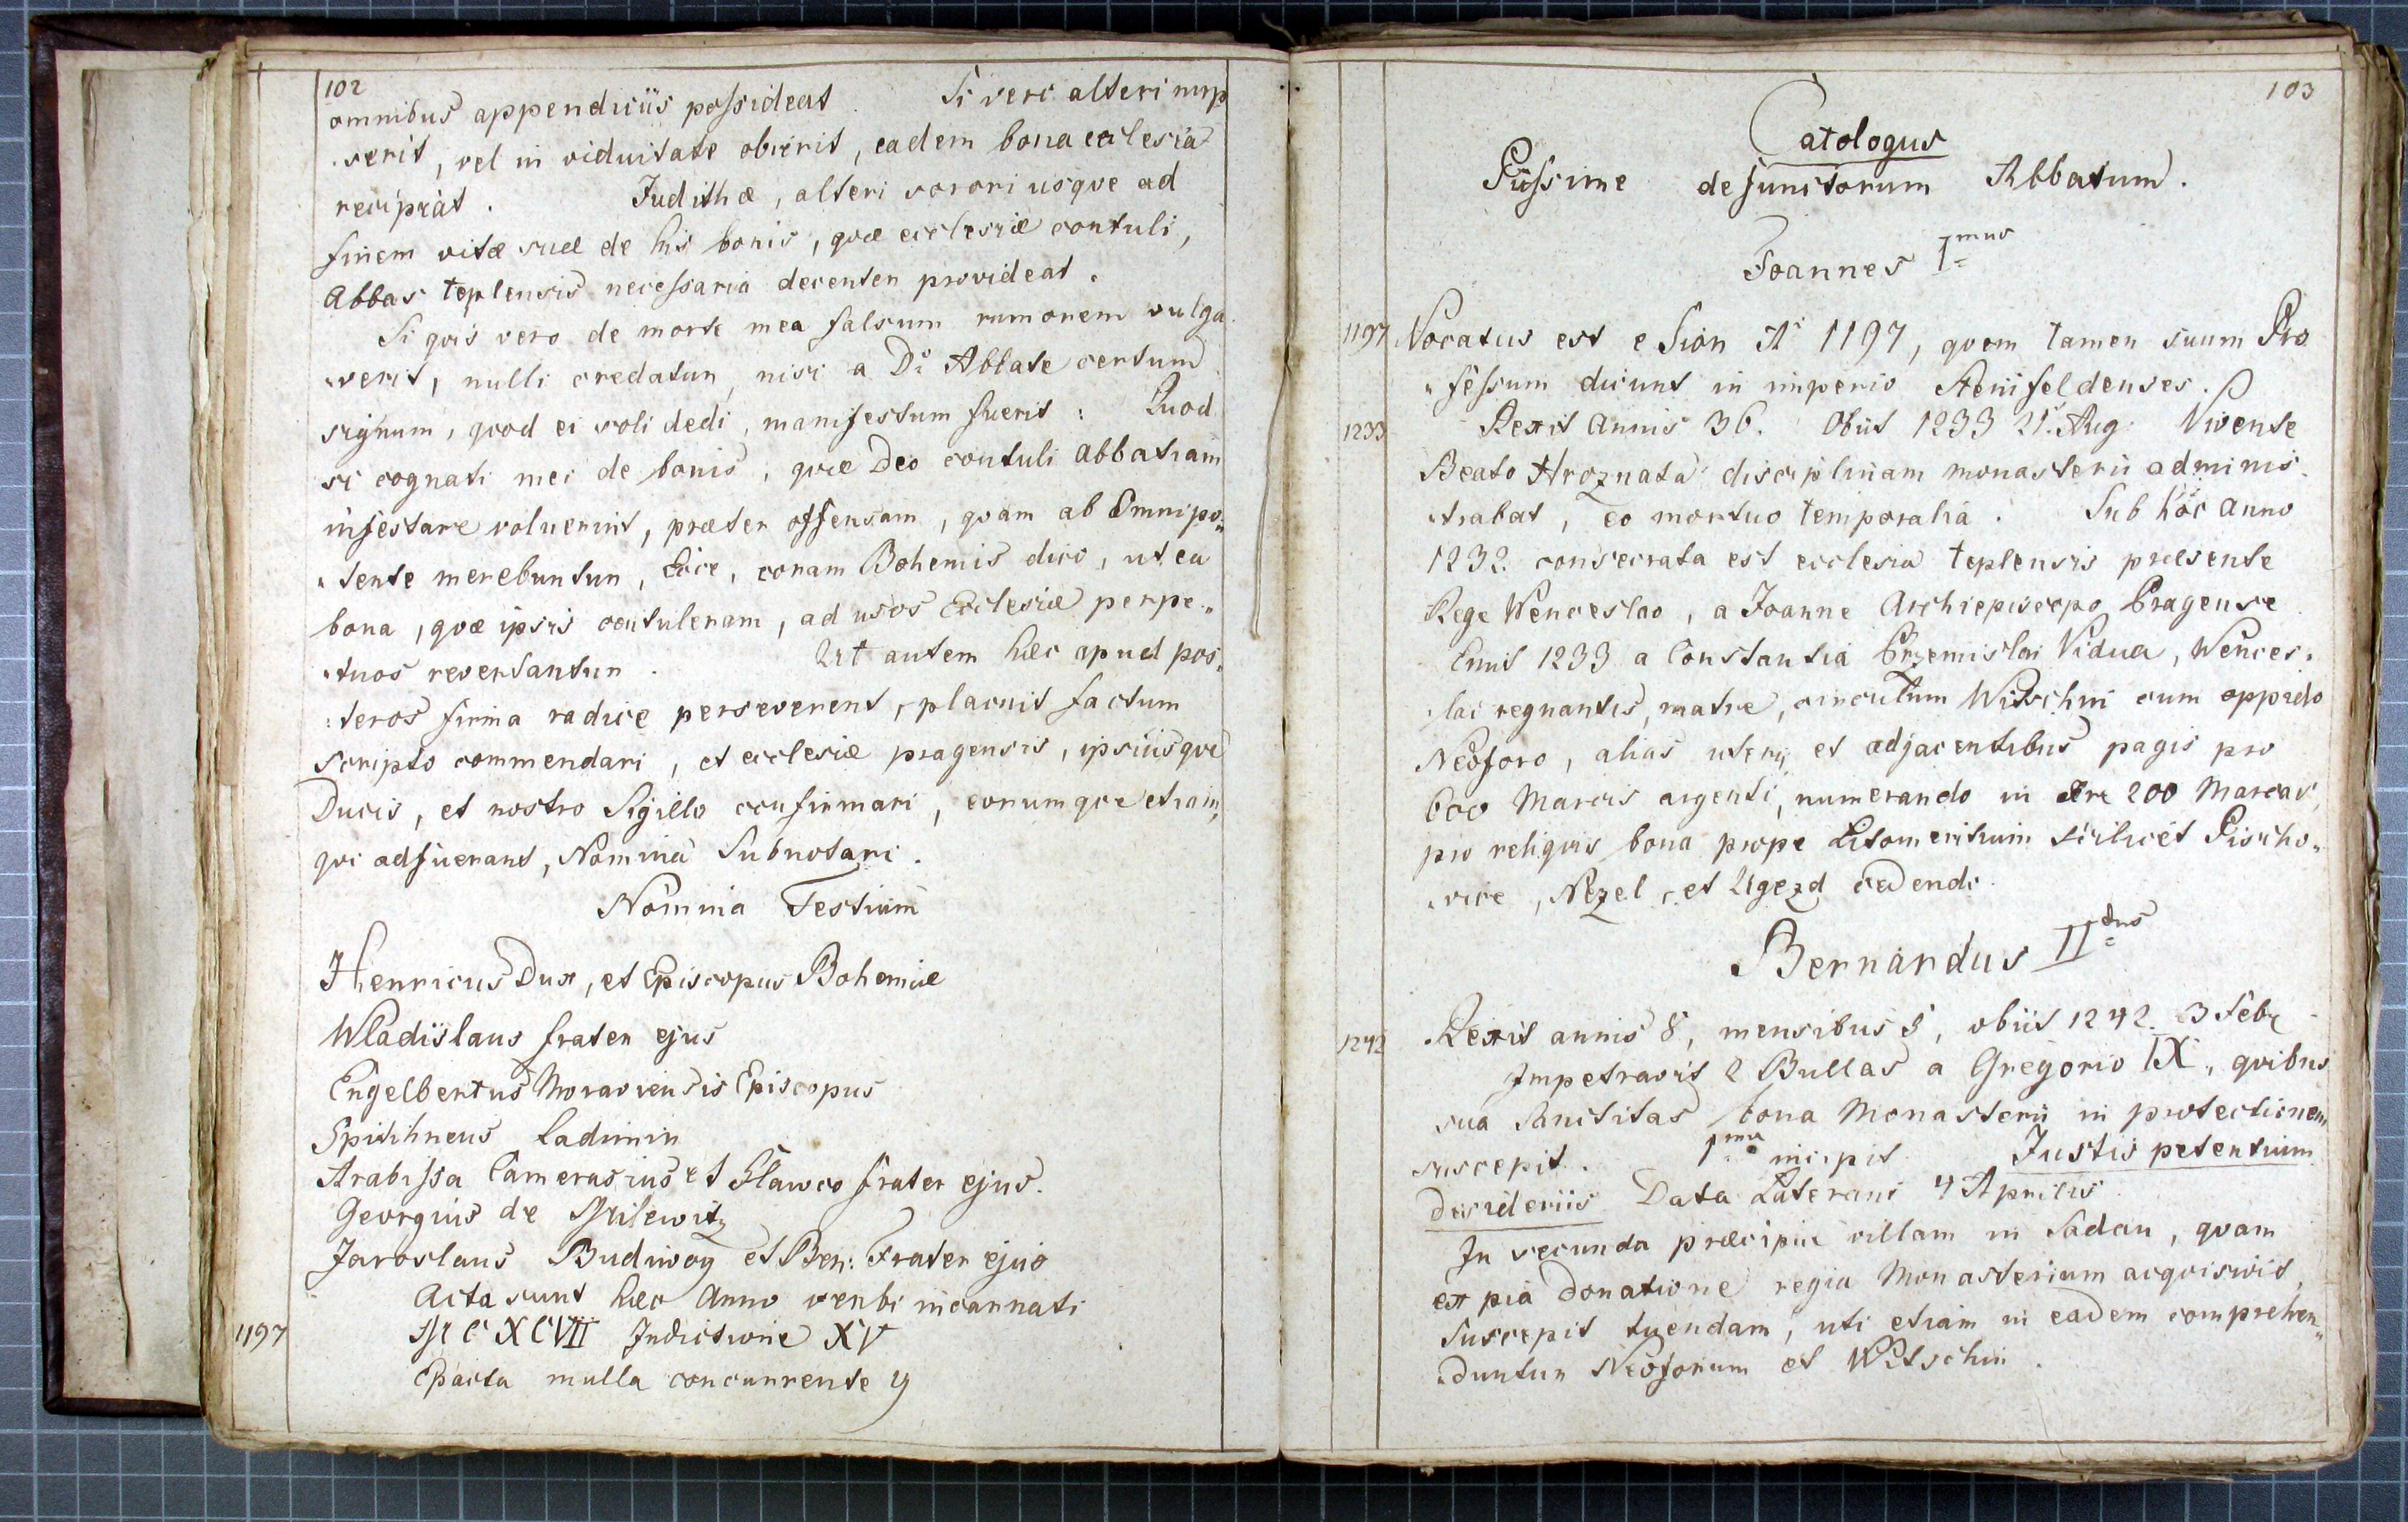 102
omnibus appendiciis possideat. Si vero alteri nup
serit, vel in viduitate obierit, eadem bona ecclesia
recipiat. Judithæ, alteri sorori usqve ad
finem vitæ suæ de his bonis, qvæ ecclesiæ contuli,
Abbas teplensis necessaria decenter provideat.
Si qvis vero de morte mea falsum rumorem vulga
verit, nulli credatur, nisi a Do Abbate certum
signum, qvod ei soli dedi, manifestum fuerit: Quod
si cognati mei de bonis, qvæ Deo contuli abbatiam
infestare voluerint, præter offensam, qvam ab Omnipo„
„tente merebuntur, Ecce, coram Bohemis dico, ut ea
bona, qvæ ipsis contuleram, ad usos Ecclesiæ perpe„
„tuos revertantur. Ut autem hæc apud pos„
„teros firma radice perseverent, placuit factum
scripto commendari, et ecclesiæ pragensis, ipsiusqve
Ducis, et nostro Sigillo confirmari, eorumqve etiam,
qvi adfuerant, Nomina Subnotari.
Nomina Testium
Henricus Dux, et Episcopus Bohemiæ
Wladislaus frater ejus
Engelbertus Moraviensis Episcopus
Spitihneus Ladimir
Arabissa Camerarius et Slawco frater ejus.
Georgius de Milewitz
Jaroslaus Budiwoy et Ben: Frater ejus
Acta sunt hæc Anno verbi incarnati
1197 MCXCVII Indictione XV
Epacta nulla concurrente y
103
Catologus
Piissime defunctorum Abbatum.
Joannes Imus
1197 Vocatus est e Sion Ao 1197, qvem tamen suum Pro
„fessum dicunt in imperio Steinfeldenses.
1233 Rexit annis 36. Obiit 1233 21. Aug: Vivente
Beato Hroznata disciplinam monasterii adminis„
„trabat, eo mortuo temporalia. Sub hoc anno
1232 consecrata est ecclesia teplensis præsente
Rege Wenceslao, a Joanne Archiepiscopo Pragense
Emit 1233 a Constantia Przemislai Vidua, Wences„
„lai regnantis, matre, circulum Witschin cum oppido
Neoforo, alias uterý et adjacentibus pagis pro
600 Marcis argenti, numerando in ære 200 Marcas,
pro reliqvis bona prope Litomeritium scilicet Pischo„
„vice, Nezel, et Ugezd cedendo.
Bernardus IIdus
1242 Rexit annis 8, mensibus 5, obiit 1242. 3 Febr
Impetravit 2 Bullas a Gregorio IX, qvibus
sua Sanctitas bona Monasterii in protectionem
suscepit. 1ma incipit Justis petentium
desideriis Data Laterani 4 Aprilis
In secunda præcipue villam in Sadau, qvam
ex pia donatione regia Monasterium acqvisivit,
Suscepit tuendam, uti etiam in eadem comprehen„
„duntur Neoforum et Witschin.